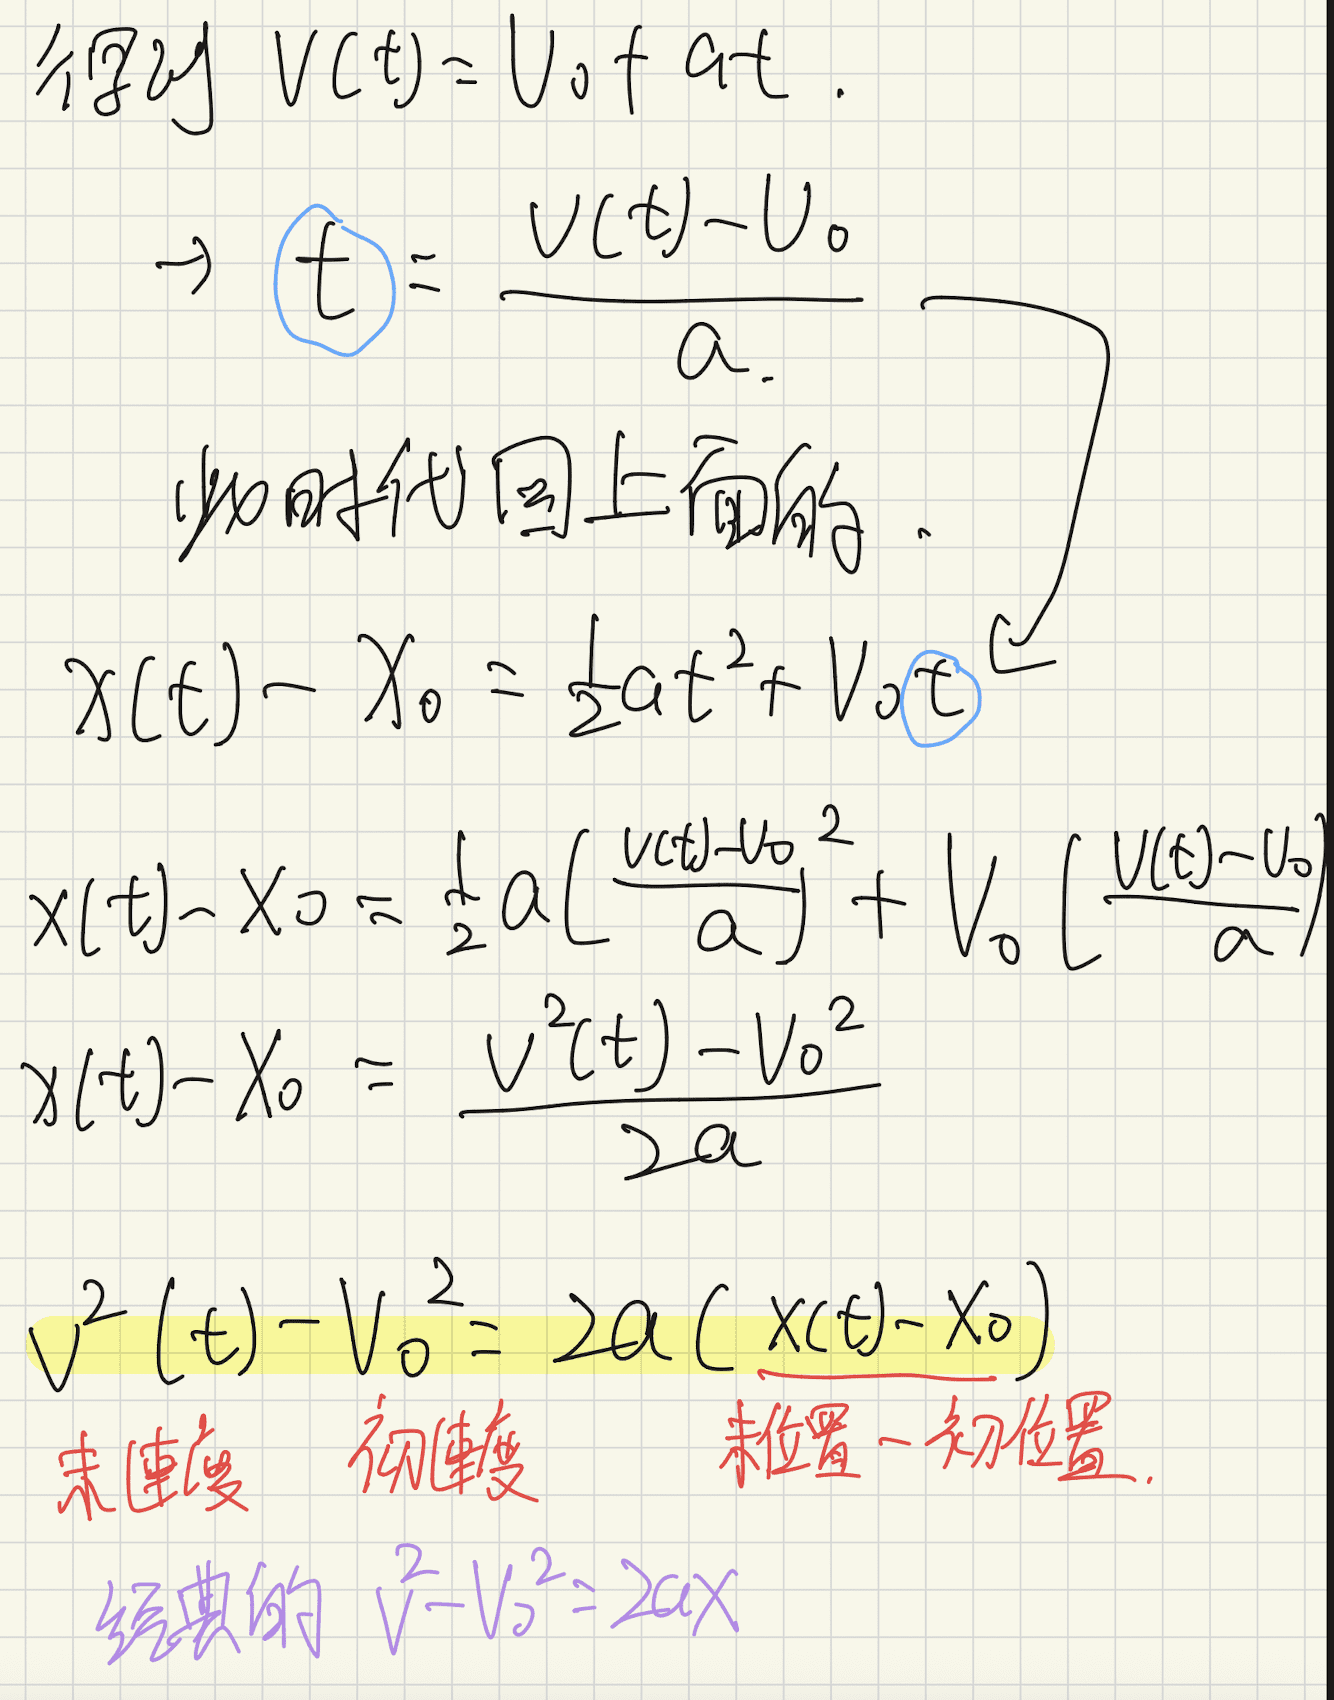 得到 V(t) = V₀ + at .
→ t = (V(t) - V₀) / a .
此時代回上面的 .
x(t) - x₀ = ½at² + V₀t
x(t) - x₀ = ½a((V(t) - V₀) / a)² + V₀((V(t) - V₀) / a)
x(t) - x₀ = (V²(t) - V₀²) / 2a
V²(t) - V₀² = 2a(x(t) - x₀)
末速度 初速度 末位置 - 初位置 .
經典的 V² - V₀² = 2ax